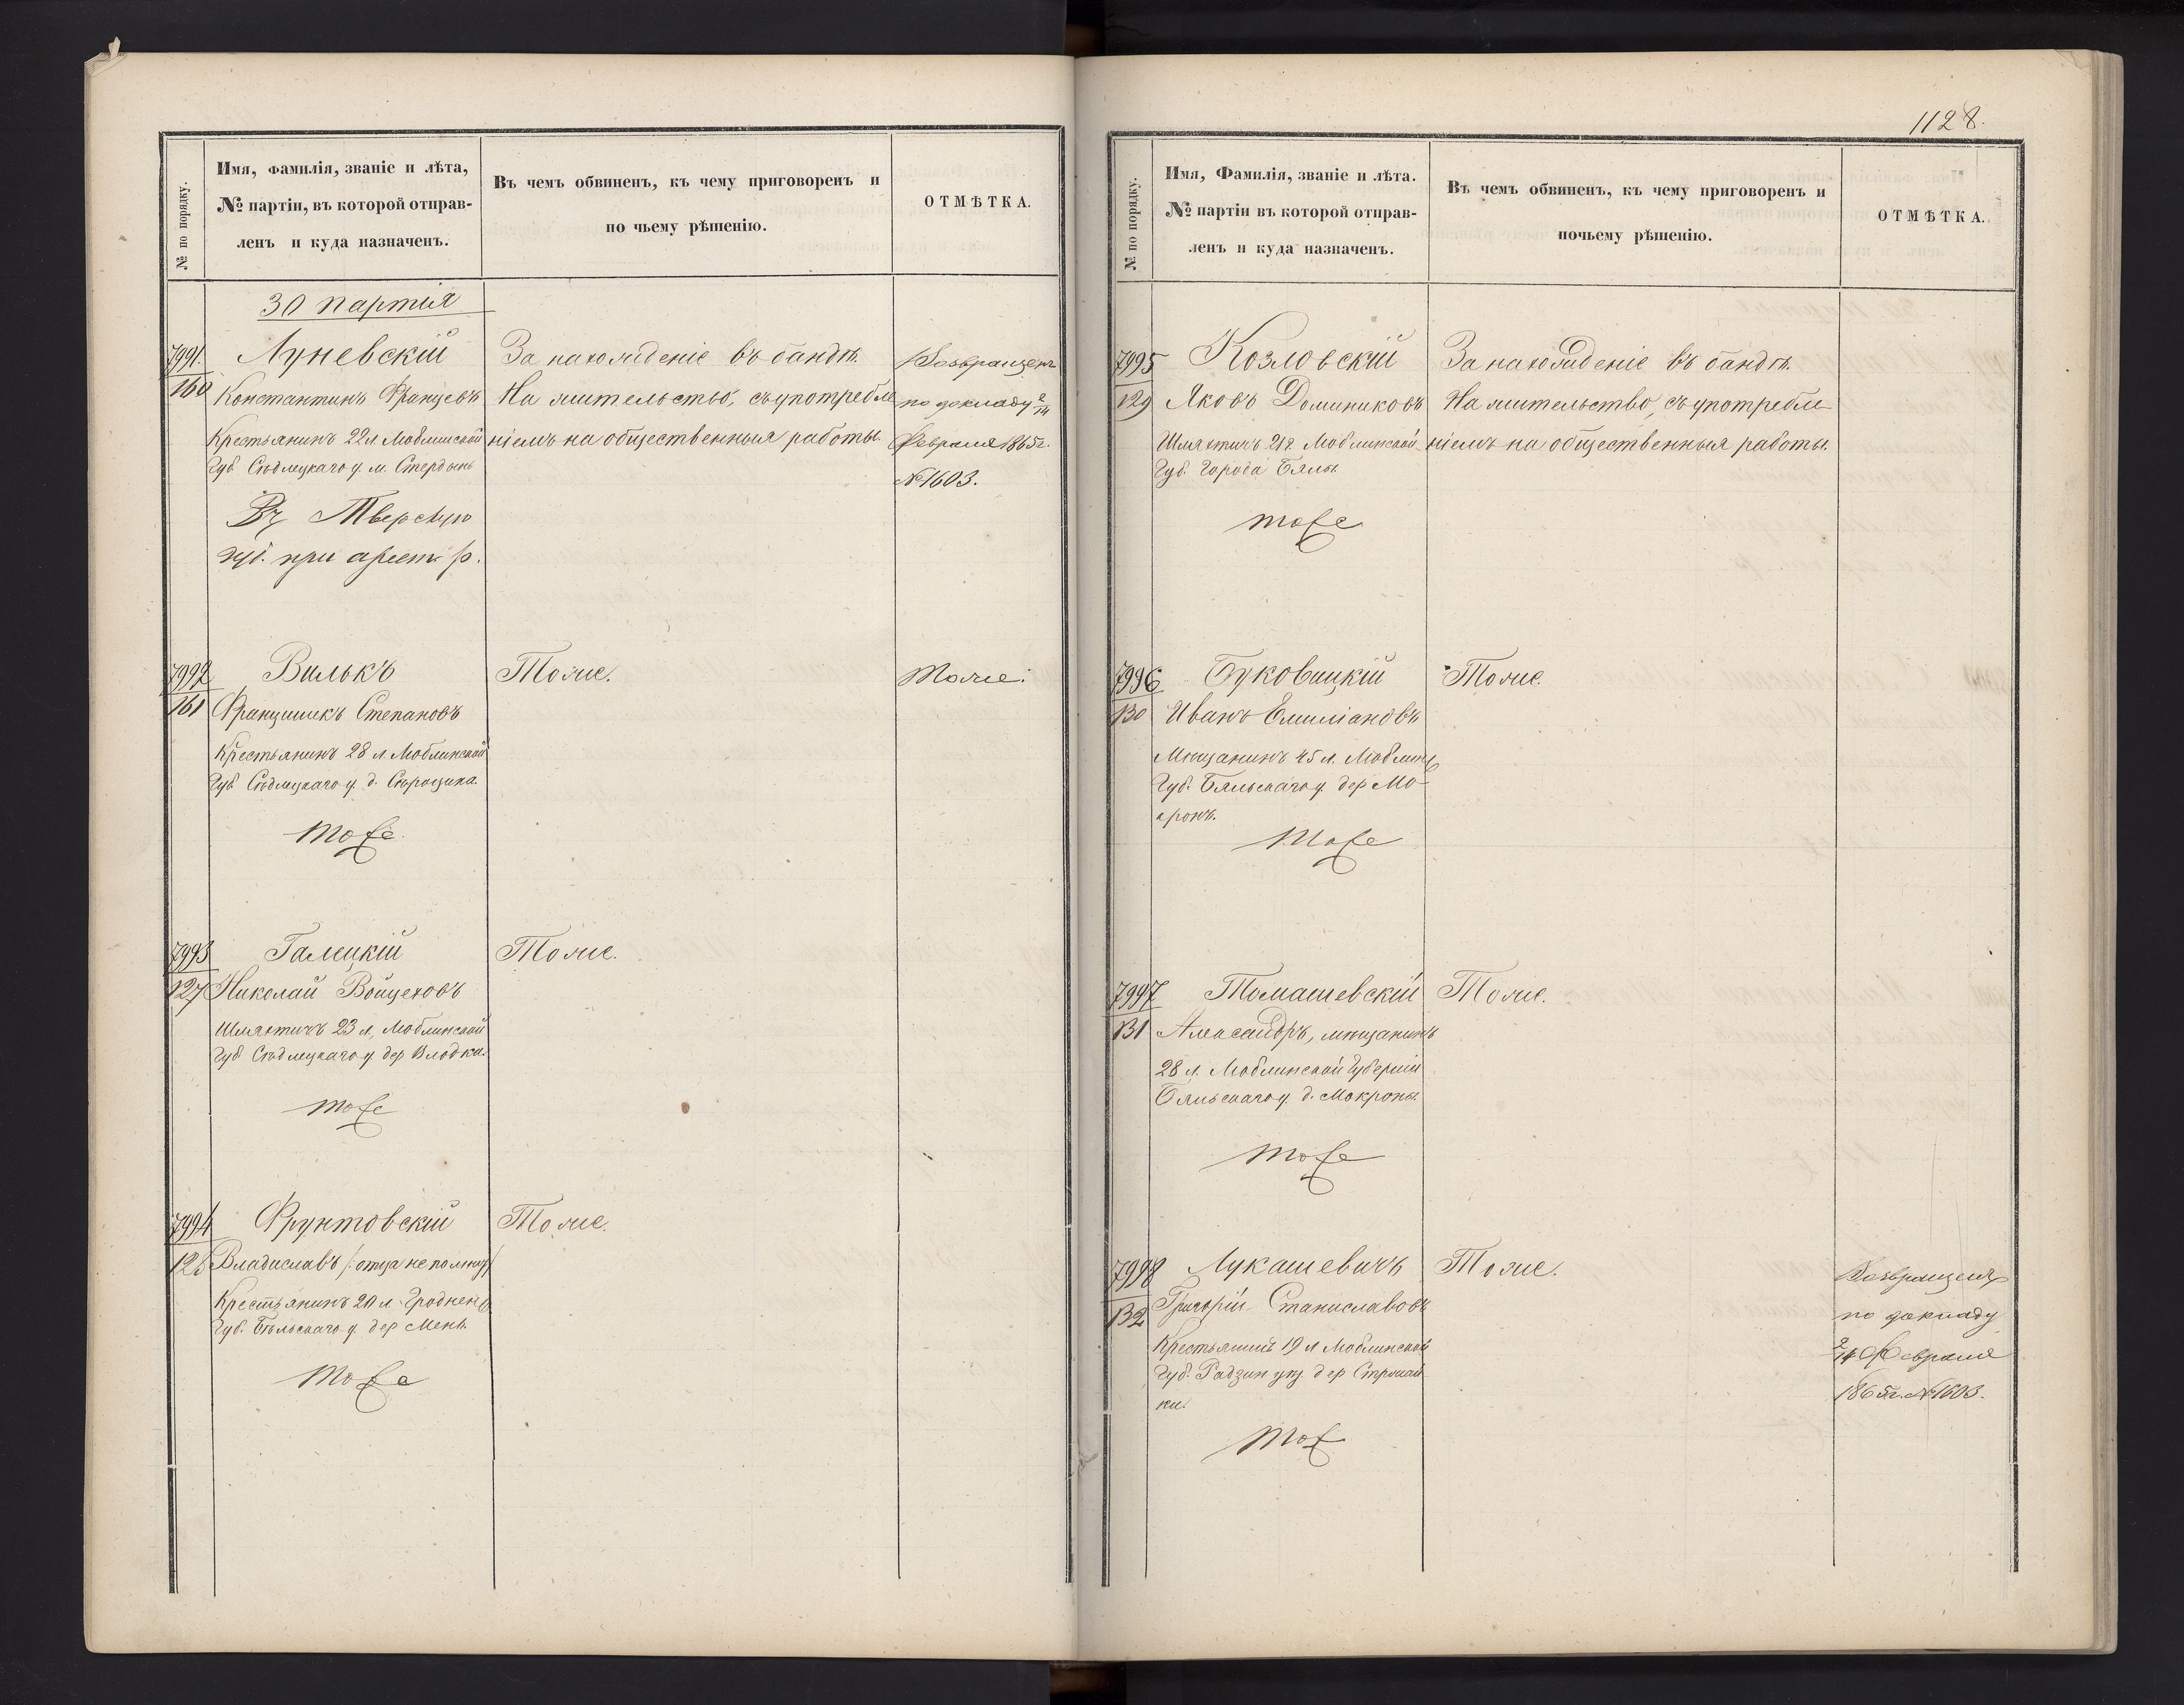 № по порядку.
Имя, фамилія, званіе и лѣта,
№ партіи, въ которой отправ-
ленъ и куда назначенъ.
Въ чемъ обвиненъ, къ чему приговоренъ и
по чьему рѣшенію.
ОТМѢТКА.
30 партія
7991.
160
Луневскій
Константинъ Францевъ
Крестьянинъ 22 л Люблинской
Губ Сѣдлецкаго у. м. Стердынь
Въ Тверскую
губ. при арест р.
За нахожденіе въ бандѣ.
На жительство, съ употребле
ніемъ на общественныя работы.
Возвращенъ
по докладу 2/14
Февраля 1865 г.
№ 1603.
7992
161
Вилькъ
Францишекъ Степановъ
Крестьянинъ 28 л Люблинской
Губ Сѣдлецкаго у. д. Сѣрощина.
тоже
Тоже.
Тоже.
7993
127
Галецкій
Николай Войцеховъ
Шляхтичъ 23 л, Люблинской
Губ Сѣдлецкаго у дер Влодки.
тоже
Тоже.
7994
128
Фрунтовскій
Владиславъ /:отца не помнит/
Крестьянинъ 20 л. Гроднен
Губ. Бѣльскаго у. дер Мень.
тоже
Тоже.
1128.
№ по порядку.
Имя, Фамилія, званіе и лѣта.
№ партіи въ которой отправ-
ленъ и куда назначенъ.
Въ чемъ обвиненъ, къ чему приговоренъ и
почьему рѣшенію.
ОТМѢТКА.
7995
129
Козловскій
Яковъ Доминиковъ
Шляхтичъ 21 г Люблинской
Губ. Города Бялы.
тоже
За нахожденіе въ бандѣ.
На жительство, съ употребле
ніемъ на общественныя работы.
7996
130
Буковицкій
Иванъ Емиліановъ
Мѣщанинъ 45 л. Люблин
Губ. Бяльскаго у. дер Мо-
кронъ.
тоже
Тоже.
7997
131
Томашевскій
Александръ, мѣщанинъ
28 л. Люблинской Губерніи
Бяльскаго у. д. Мокроны.
тоже
Тоже.
7998
132
Лукашевичъ
Григорій Станиславовъ
Крестьянинъ 19 л Люблинской
Губ. Радзин у дер
ки.
тож
Тоже.
Возвращенъ
по докладу
2/14 Февраля
1865 г. № 1603.